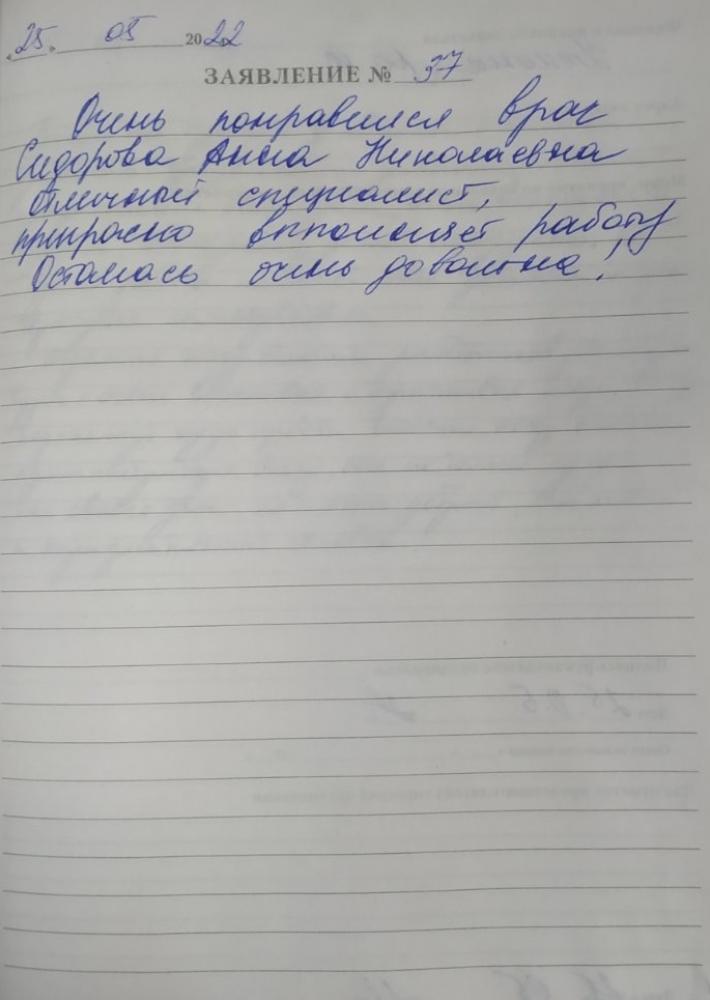 25. 05 2022
ЗАЯВЛЕНИЕ № 37
Очень понравился врач
Сидорова Анна Николаевна
отличный специалист,
прекрасно выполняет работу
Осталась очень довольна!